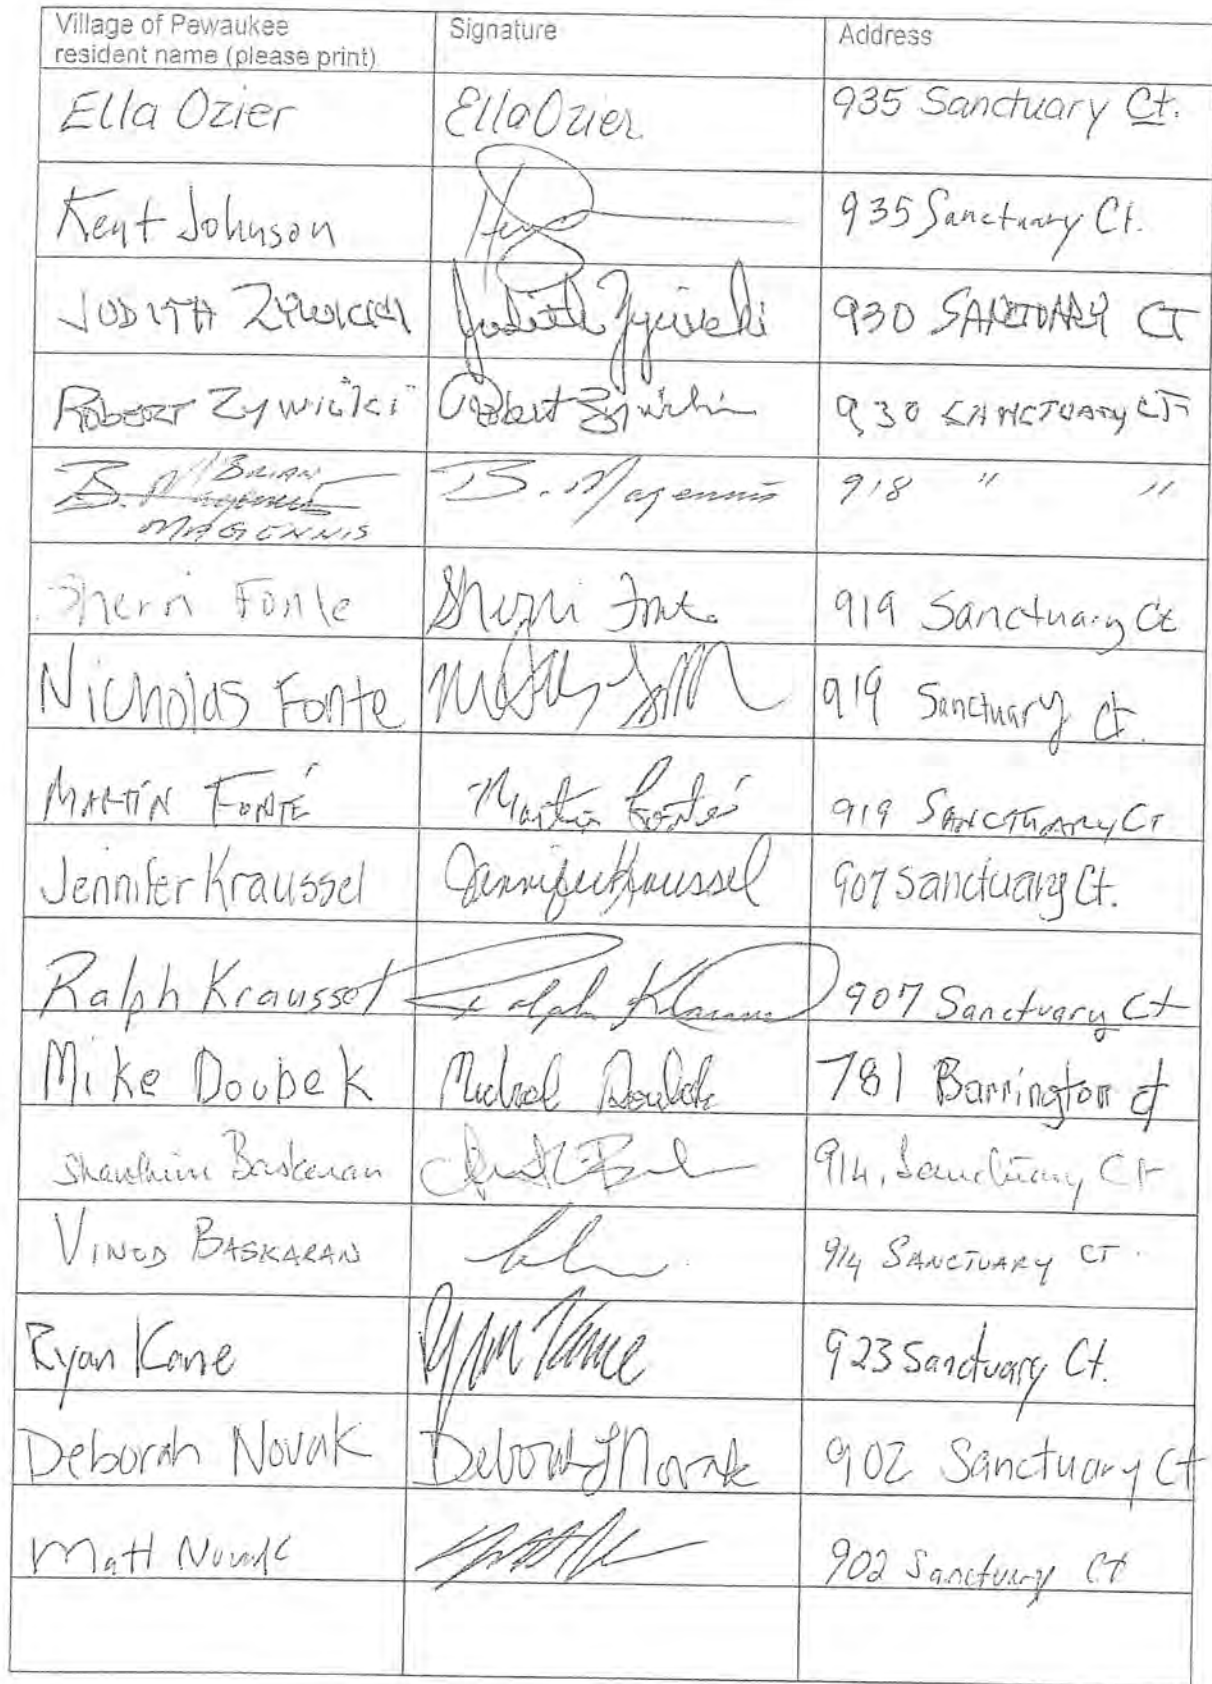 Village of Pewaukee Signature Address
resident name (please print)
Ella Ozier Ella Ozier 935 Sanctuary Ct.
Kent Johnson 935 Sanctuary Ct.
JUDITH Judith 930 SANCTUARY CT
ROBERT Zywicki Robert 930 SANCTUARY CT
BRIAN
B. Magennis B. Magennis 918 " "
MAGENNIS
Sherri Fonte Sherri Fonte 919 Sanctuary Ct
Nicholas Fonte 919 Sanctuary Ct.
MARTIN FONTÉ Martin Fonté 919 SANCTUARY CT
Jennifer Kraussel Jennifer Kraussel 907 Sanctuary Ct.
Ralph Kraussel Ralph 907 Sanctuary Ct
Mike Doubek Michael Doubek 781 Barrington ct
Baskaran 914, Sanctuary Ct
VINOD BASKARAN 914 SANCTUARY CT.
Ryan Kane Ryan Kane 923 Sanctuary Ct.
Deborah Novak Deborah J Novak 902 Sanctuary Ct
Matt Novak 902 Sanctuary Ct